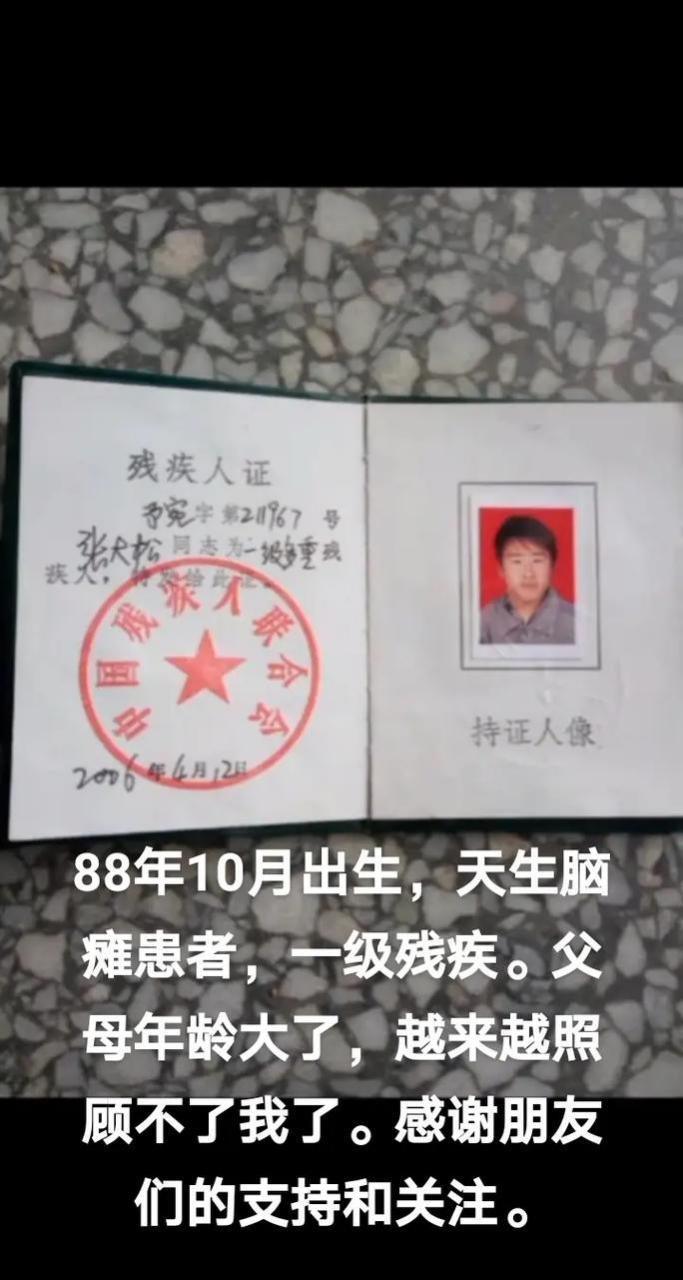 残疾人证
予宛字第211967号
张大松同志为一级多重残
疾人，特发给此证。
中国残疾人联合会
2006年4月12日
持证人像
88年10月出生，天生脑
瘫患者，一级残疾。父
母年龄大了，越来越照
顾不了我了。感谢朋友
们的支持和关注。